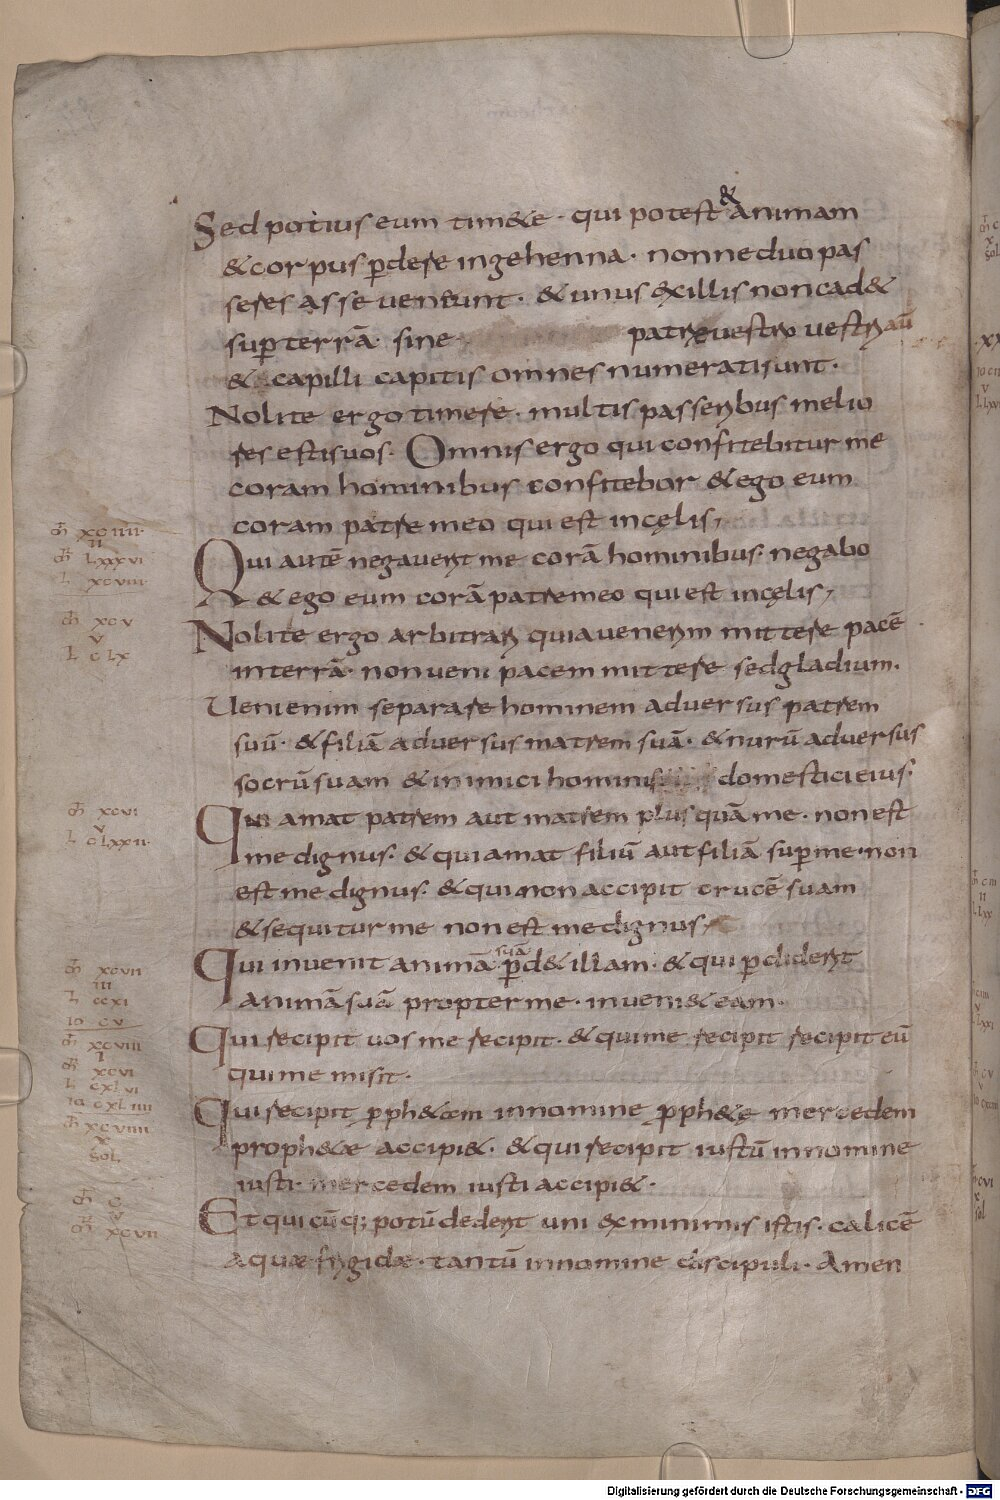 Sed potius eum tim&e · qui potest & animam
& corpus pdere ingehenna · nonne duo pas
seres asse veneunt · & unus exillis non cad&
sup terrā sine patre vestro vestri aū
& capilli capitis omnes numerati sunt ·
Nolite ergo timere · multis passeribus melio
res estis vos · Omnis ergo qui confitebitur me
coram hominibus confitebor & ego eum
coram patre meo qui est incęlis,
Qui autē negaverit me corā hominibus · negabo
& ego eum corā patre meo qui est incęlis,
Nolite ergo arbitrari quia venerim mittere pacē
interrā · non veni pacem mittere sed gladium ·
Veni enim separare hominem adversus patrem
suū · & filiā adversus matrem suā · & nurū adversus
socrū suam & inimici hominis domestici eius ·
Qui amat patrem aut matrem plus quā me · non est
me dignus · & qui amat filiū aut filiā sup me · non
est me dignus · & qui non accipit crucē suam
& sequitur me non est me dignus,
Qui invenit animā suā pd& illam · & qui pdiderit
animā suā propter me · inveni& eam ·
Qui recipit vos me recipit · & qui me recipit recipit eū
qui me misit ·
Qui recipit pph&am innomine pph&ę mercedem
proph&æ accipi& · & qui recipit iustū innomine
iusti · mercedem iusti accipi& ·
Et qui cūq; potū dederit uni ex minimis istis · calicē
aquæ frigidæ · tantū innomine discipuli · Amen
xciiii
ii
Lxxxvi
L xcviii
xcv
v
L cLx
xcvi
v
L cLxxii
xcvii
iii
L ccxi
io cv
xcviii
i
xcvi
L cxLvi
io cxLiiii
xcviiii
x
soL
c
v
xcvii
Digitalisierung gefördert durch die Deutsche Forschungsgemeinschaft - DFG